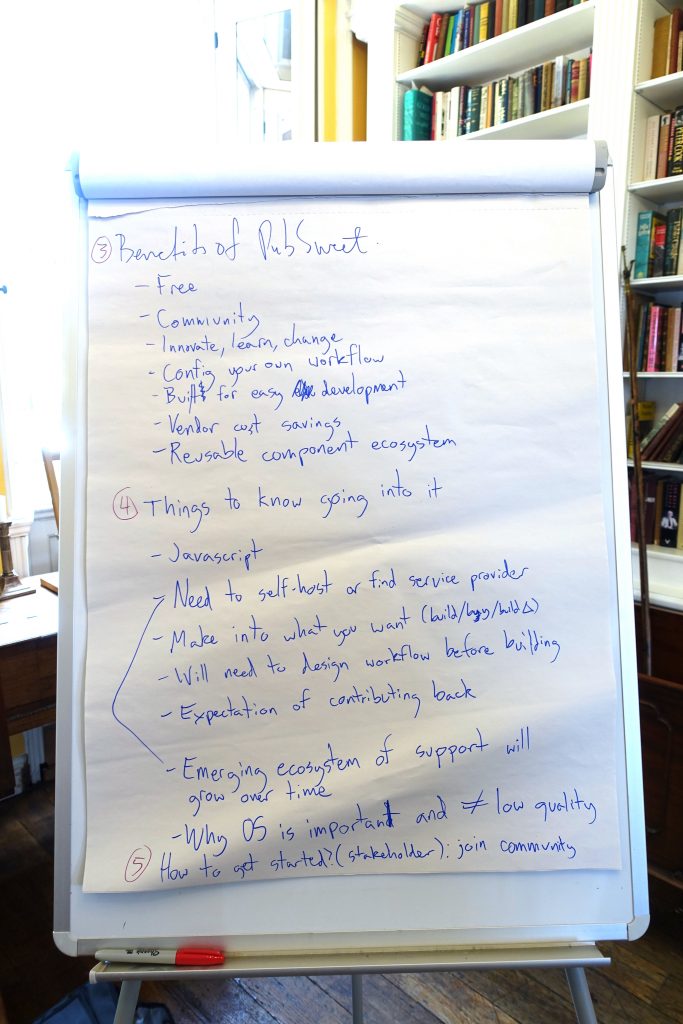 ③ Benefits of PubSweet.
- Free
- Community
- Innovate, learn, change
- Config your own workflow
- Built for easy development
- Vendor cost savings
- Reusable component ecosystem
④ Things to know going into it
- Javascript
- Need to self-host or find service provider
- Make into what you want (build/buy/build Δ)
- Will need to design workflow before building
- Expectation of contributing back
- Emerging ecosystem of support will
grow over time
- Why OS is important and ≠ low quality
⑤ How to get started? (stakeholder): join community
Sharpie